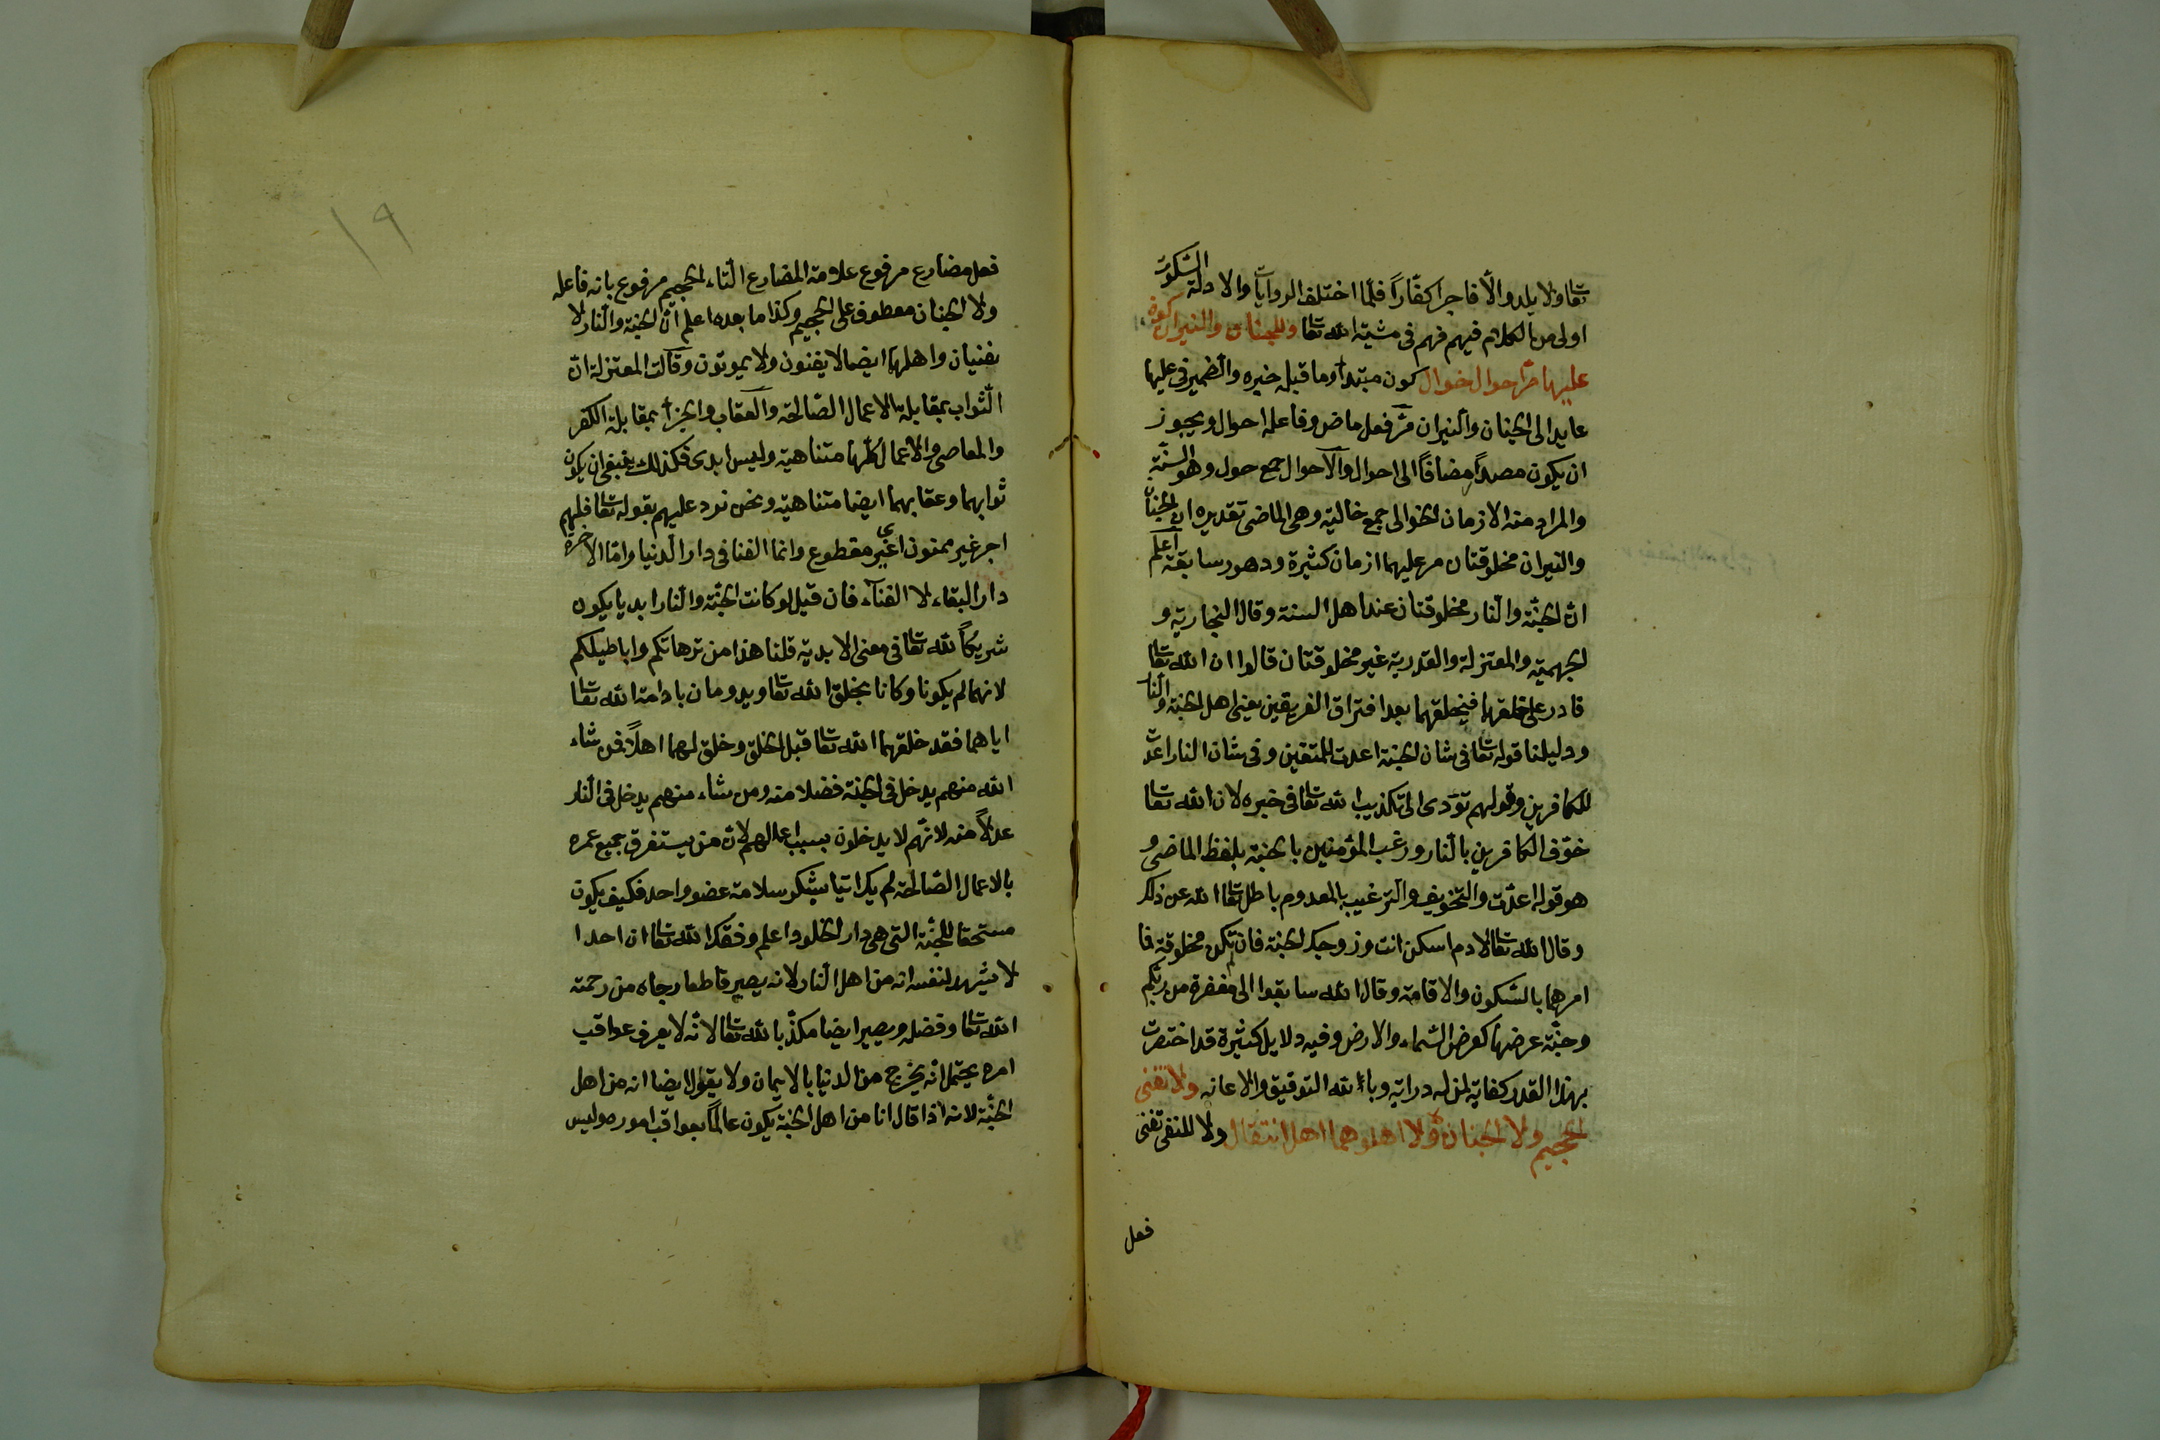 تعا ولا يلدوا الا فاجرا كفارا فلما اختلف الروايات والادلة السكوت
اولى من الكلام فيهم فهم فى مشية الله تعا وللجنان والنيران كون
عليها مر احوال خوال كون مبتدأ وما قبله خبره والضمير فى عليها
عايد الى الجنان والنيران مرّ فعل ماض وفاعله احوال ويجوز
ان يكون مصدرا مضافاً الى احوال والاحوال جمع حول وهو السنة
والمراد منه الازمان الخوالى جمع خالية وهى الماضى تقديره ان الجنان
والنيران مخلوقتان مر عليهما ازمان كثيرة ودهور سابقة اعلم
ان الجنّة والنار مخلوقتان عند اهل السنة وقال النجارية و
الجهمية والمعتزلة والقدرية غير مخلوقتان قالوا ان الله تعا
قادر على خلقهما فيخلقهما بعد افتراق الفريقين يعنى اهل الجنة والنار
ودليلنا قوله تعا فى شان الجنة اعدت للمتقين وفى شان النار اعدت
للكافرين وقولهم تؤدى الى تكذيب الله تعا فى خبره لان الله تعا
خوّف الكافرين بالنار ورغب المؤمنين بالجنة بلفظ الماضى و
هو قوله اعدّت والتخويف والترغيب بالمعدوم باطل تعا الله عن ذلك
وقال الله تعا لادم اسكن انت وزوجك الجنة فان لم تكن مخلوقة فا
امرهما بالسكون والاقامة وقال الله سابقوا الى مغفرة من ربكم
وجنّة عرضها كعرض السماء والارض وفيه دلايل كثيرة قد اختصرت
بهذا القدر كفاية لمن له دراية وبالله التوفيق والاعانه ولا تفنى
الجحيم ولا الجنان ولا اهلوهما اهل انتقال ولا للنفى تفنى
فعل
١٩
فعل مضارع مرفوع علامة المضارع التاء الجحيم مرفوع بانه فاعله
ولا الجنان معطوف على الجحيم وكذا ما بعده اعلم ان الجنة والنار لا
يفنيان واهلهما ايضا لا يفنون ولا يموتون وقالت المعتزلة ان
الثواب بمقابلة الاعمال الصالحة والعقاب والجزأ بمقابلة الكفر
والمعاصى والاعمال كلّها متناهية وليس ابدى فكذلك ينبغى ان يكون
ثوابهما وعقابهما ايضا متناهية ونحن نرد عليهم بقوله تعا فلهم
اجر غير ممنون اى غير مقطوع وانما الفنا فى دار الدنيا واما الاخرة
دار البقاء لا الفنآء فان قيل لو كانت الجنّة والنار ابديا يكون
شريكاً لله تعا فى معنى الابدية قلنا هذا من ترهاتكم واباطيلكم
لانهما لم يكونا وكانا بخلق الله تعا ويدومان بادامة الله تعا
اياهما فقد خلقهما الله تعا قبل الخلق وخلق لهما اهلاً فمن شاء
الله منهم يدخل فى الجنة فضلا منه ومن شاء منهم يدخل فى النار
عدلاً منه لانّهم لا يدخلون بسبب اعمالهم لان من يستغرق جميع عمره
بالاعمال الصّالحة لم يكن اتيا بشكر سلامة عضو واحد فكيف يكون
مستحقا للجنّة التى هى دار الخلود اعلم وفقك الله تعا ان احدا
لا يشهد لنفسه انه من اهل النار لانه يصير قاطعا رجاه من رحمة
الله تعا وفضله ويصير ايضا مكذّبا لله تعا لانّه لا يعرف عواقب
امره يحتمل انّه يخرج من الدنيا بالايمان ولا يقول ايضا انه من اهل
الجنّة لانه اذا قال انا من اهل الجنة يكون عالماً بعواقب اموره وليس